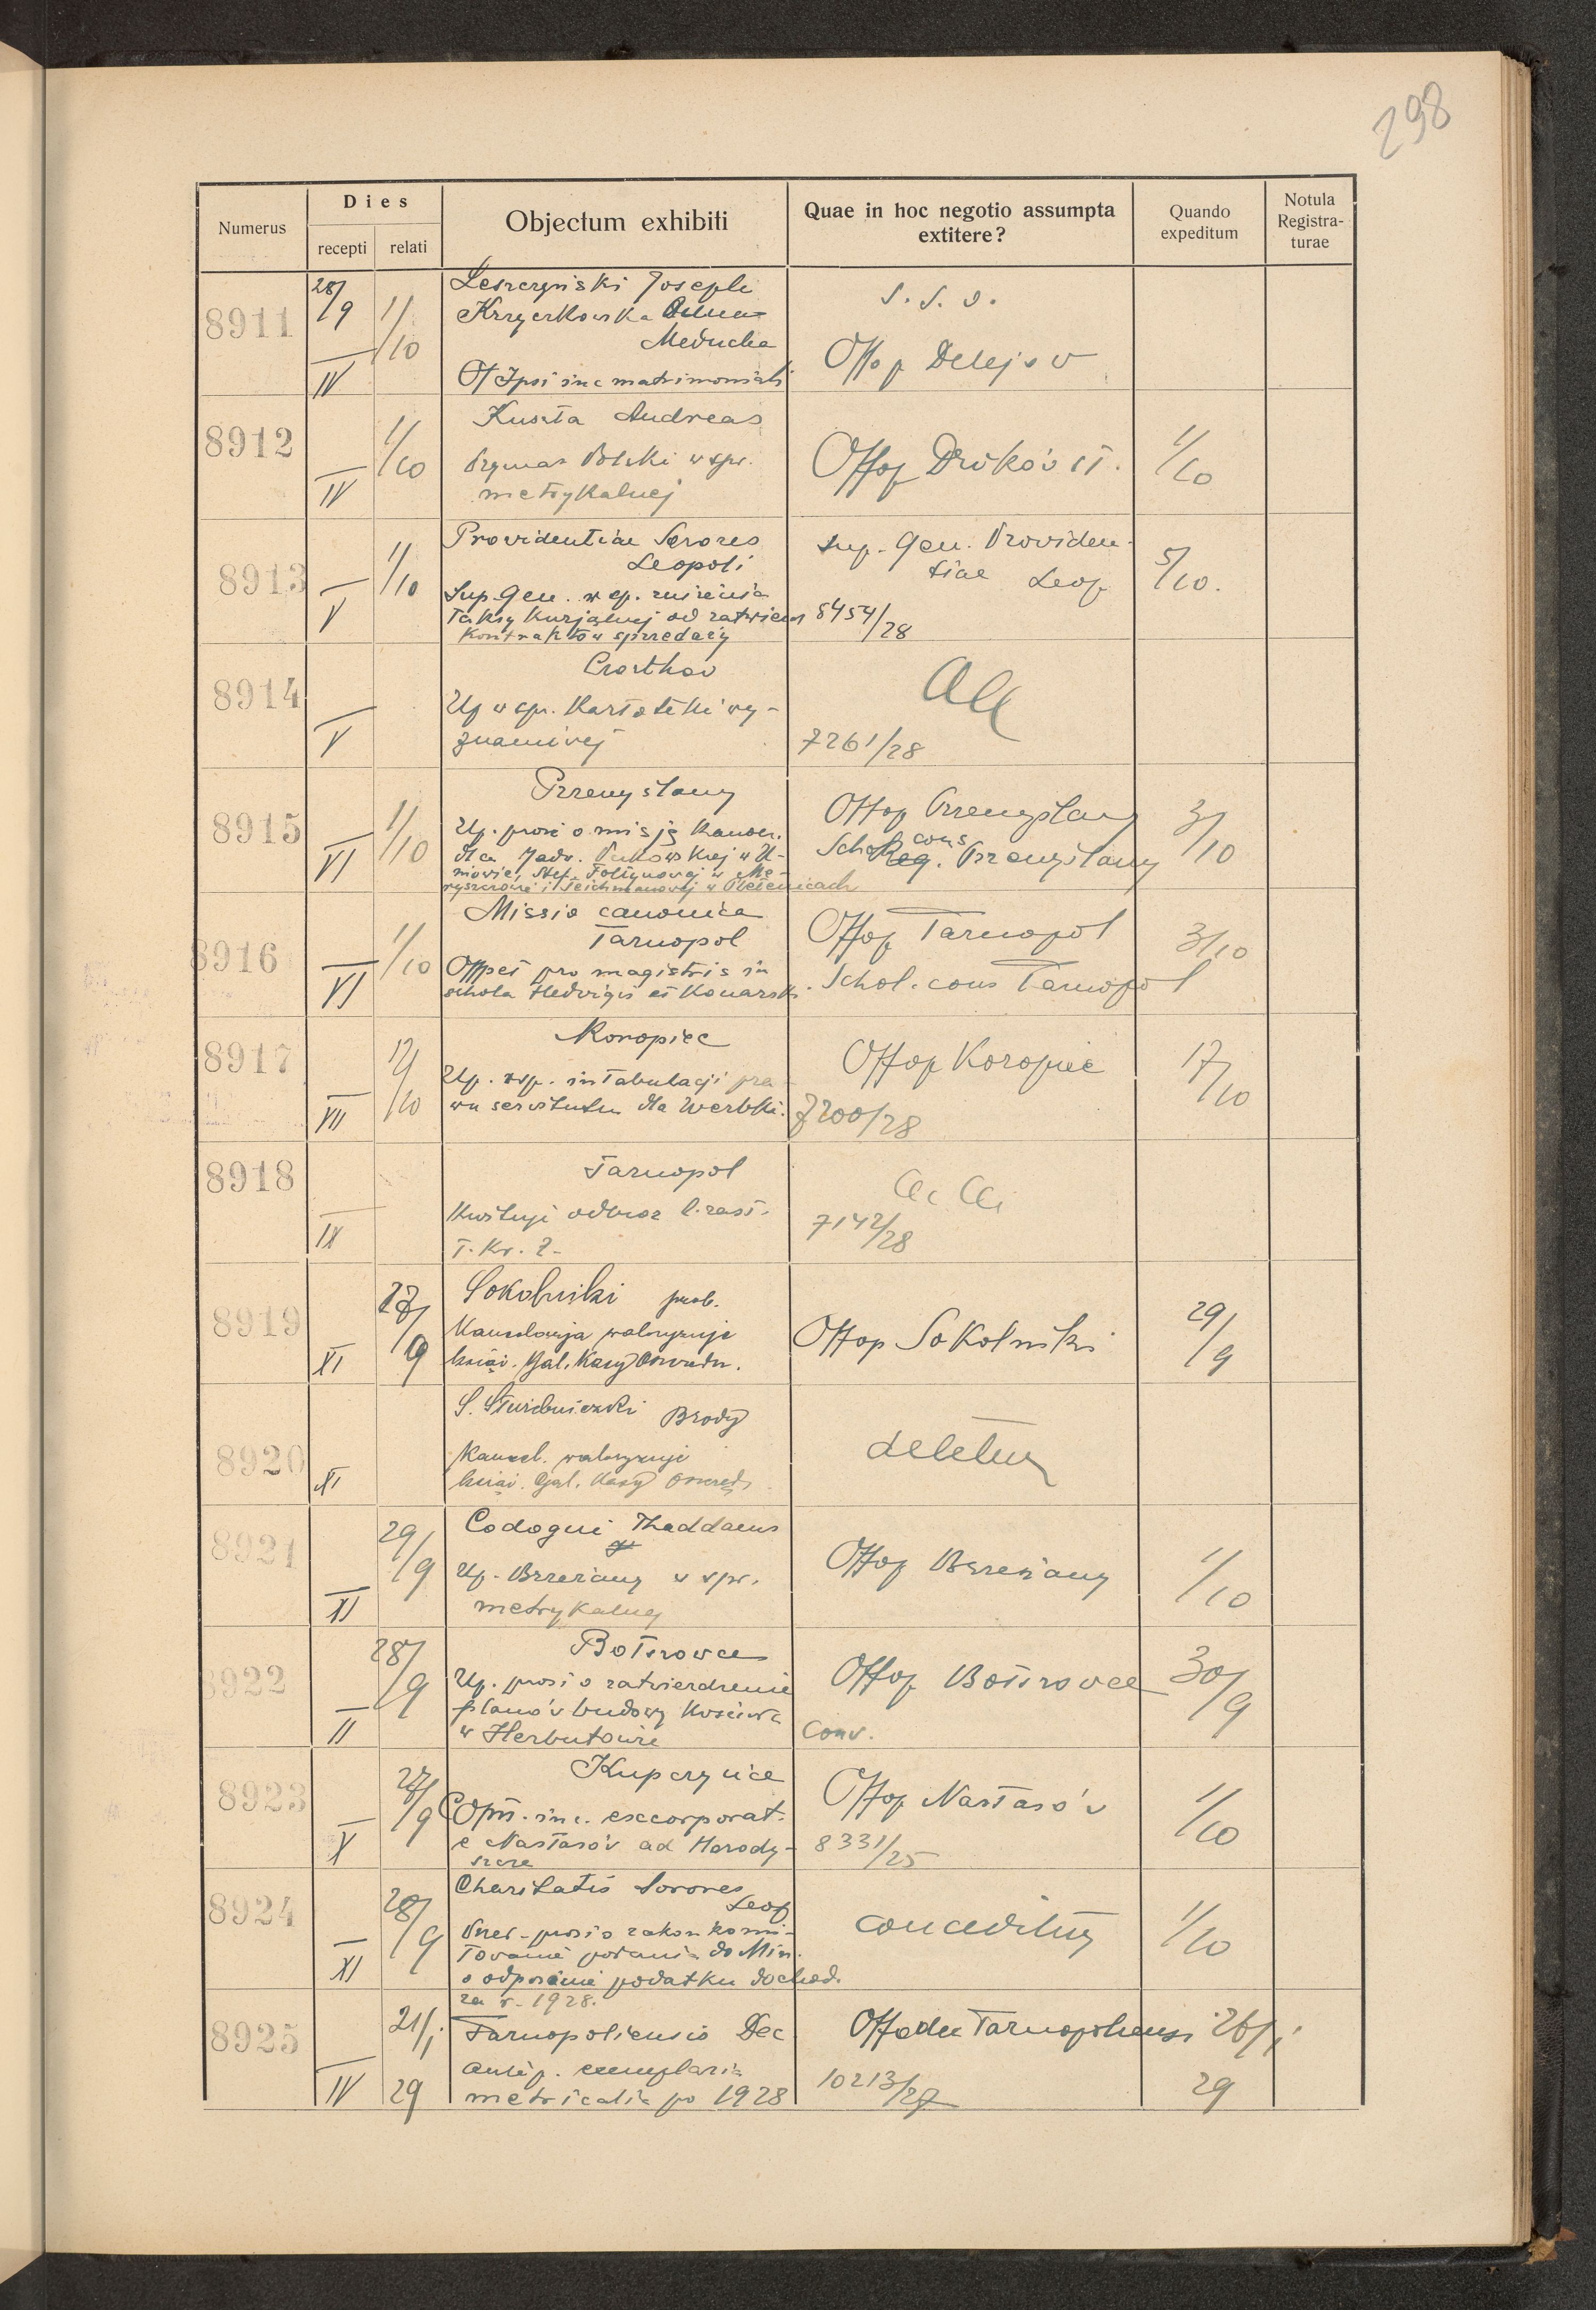 298
Numerus
Dies
recepti relati
Objectum exhibiti
Quae in hoc negotio assumpta
extitere?
Quando
expeditum
Notula
Registra-
turae
8911
28/9
IV
1/10
Leszczyński Joseph
Krzyczkowska
Meducha
matrimonial
S. S. O.
Offop Delejow
8912
IV
1/10
Kuszta Andreas
Prymas Polski w spr.
metrykalnej
1/10
8913
V
1/10
Providentiae Sorores
Leopoli
Sup. Gen. w sp. zniżenia
Taksy kurjalnej od zatwierdz
kontraktów sprzedaży
Sup. Gen. Providen-
tiae Leop
8454/28
5/10.
8914
V
Czortkow
Up w spr. Kartoteki wy-
znaniowej
7261/28
8915
VI
1/10
Przemyślany
Up. prosi o misję kanon.
dla Jadw.
Offop Przemyślany
Schol cons
Reg. Przemyślany
3/10
8916
VI
1/10
Missio canonica
Tarnopol
Offpet pro magistris in
schola Hedvigis et Konarski
Offop Tarnopol
Schol. cons Tarnopol
3/10
8917
VII
12/10
Koropiec
Up. wsp. intabulacji pra-
wa servitutu dla Werbki.
Offop Koropiec
7200/28
17/10
8918
IX
Tarnopol
Kwituje odbior
T. Kr. Z-
7142/28
8919
XI
27/9
Sokolniki prob.
Kancelarja waloryzuje
książ. Gal. Kasy Oszczędn.
Offop Sokolniki
29/9
8920
XI
Brody
Kancel. waloryzuje
książ. Gal. Kasy Oszczędn
deletur
8921
XI
29/9
Codogni Thaddaeus
Up. Brzeżany w spr.
metrykalnej
Offop Brzeżany
1/10
8922
II
28/9
Botszowce
Up. prosi o zatwierdzenie
planów budowy kościoła
w Herbutowie
Offop Botszowce
Conv.
30/9
8923
X
27/9
Kupczynce
excorporat.
e Nastasów ad Horody-
szcze
Offop Nastasów
8331/25
1/10
8924
XI
28/9
Charitatis Sorores
Leop
Przeł. prosi o
podania do Min.
o odpisanie podatku dochod.
za r. 1928.
conceditur
1/10
8925
IV
21/i 29
Tarnopoliensis Dec
exemplaria
metricalia po 1928
Offodec Tarnopoliensi
10213/27
26/i 29